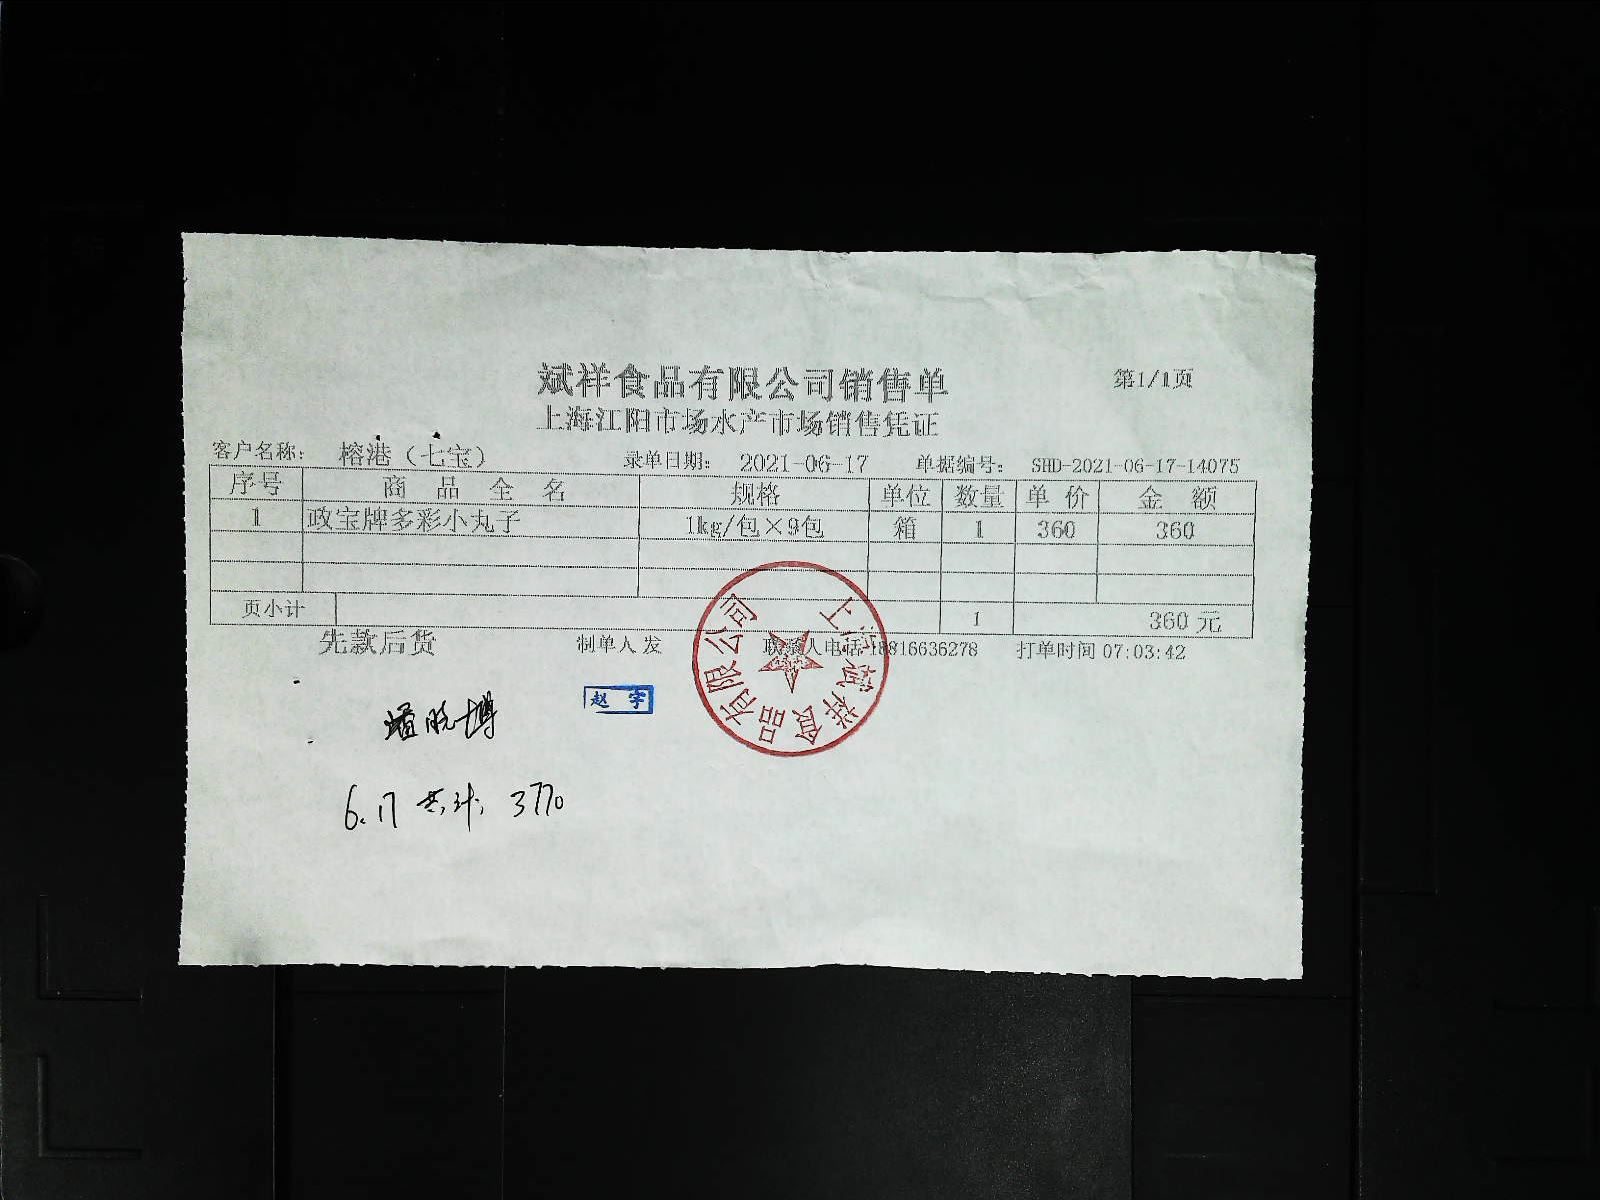 斌祥食品有限公司销售单
第1/1页
上海江阳市场水产市场销售凭证
客户名称： 榕港（七宝） 录单日期： 2021-06-17 单据编号： SHD-2021-06-17-14075
序号 商品全名 规格 单位 数量 单价 金额
1 政宝牌多彩小丸子 1kg/包×9包 箱 1 360 360
页小计 1 360 元
先款后货 制单人 发 联系人电话 18816636278 打单时间 07:03:42
上海斌祥食品有限公司
赵宇
6.17 共计: 3770